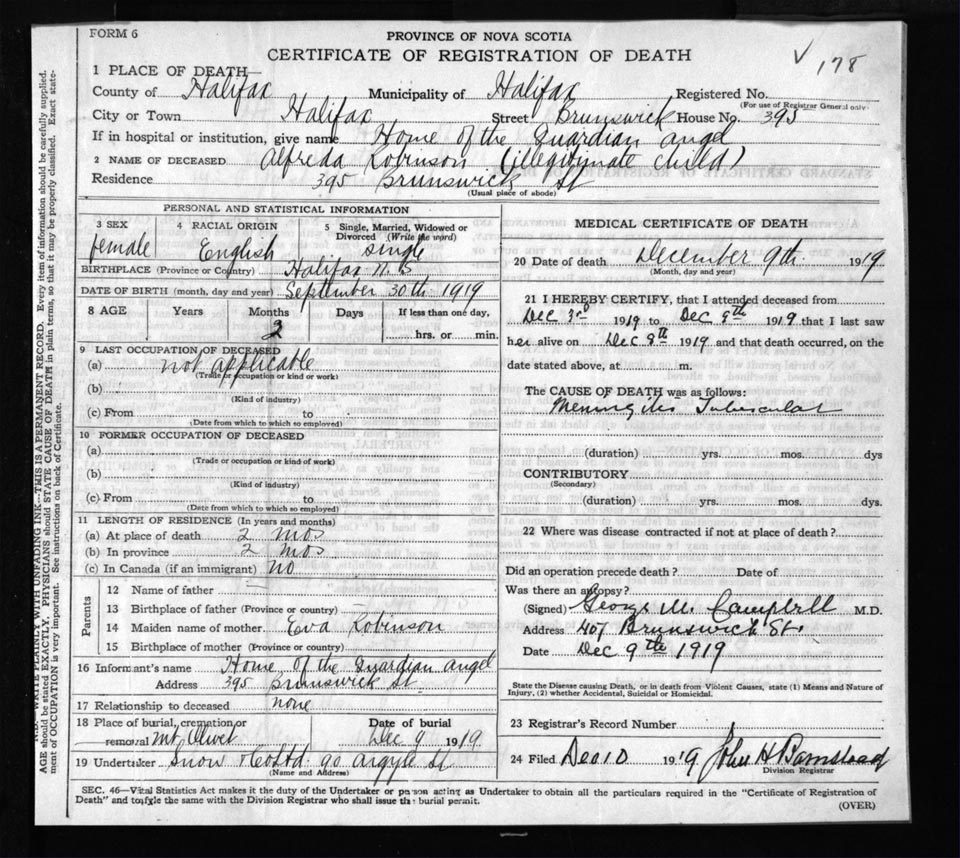 FORM 6
PROVINCE OF NOVA SCOTIA
CERTIFICATE OF REGISTRATION OF DEATH
178
1 PLACE OF DEATH
County of Halifax Municipality of Halifax Registered No.
(For use of Registrar General only
City or Town Halifax Street Brunswick House No. 395
If in hospital or institution, give name Home of the Guardian Angel
2 NAME OF DECEASED Alfreda Robinson (illegitimate child)
Residence 395 Brunswick St
(Usual place of abode)
PERSONAL AND STATISTICAL INFORMATION
3 SEX 4 RACIAL ORIGIN 5 Single, Married, Widowed or Divorced (Write the word)
female English single
BIRTHPLACE (Province or Country) Halifax N.S
DATE OF BIRTH (month, day and year) September 30th 1919
8 AGE Years Months Days If less than one day,
2 hrs. or min.
9 LAST OCCUPATION OF DECEASED
(a) not applicable
(Trade or occupation or kind of work)
(b)
(Kind of industry)
(c) From to
(Date from which to which so employed)
10 FORMER OCCUPATION OF DECEASED
(a)
(Trade or occupation or kind of work)
(b)
(Kind of industry)
(c) From to
(Date from which to which so employed)
11 LENGTH OF RESIDENCE (In years and months)
(a) At place of death 2 mos
(b) In province 2 mos
(c) In Canada (if an immigrant) no
Parents
12 Name of father
13 Birthplace of father (Province or country)
14 Maiden name of mother Eva Robinson
15 Birthplace of mother (Province or country)
16 Informant's name Home of the Guardian Angel
Address 395 Brunswick St
17 Relationship to deceased none
18 Place of burial, cremation or Date of burial
removal Mt Olivet Dec 9 1919
19 Undertaker Snow & Co Ltd. 90 Argyle St
(Name and Address)
MEDICAL CERTIFICATE OF DEATH
20 Date of death December 9th 1919
(Month, day and year)
21 I HEREBY CERTIFY, that I attended deceased from
Dec 3rd 1919 to Dec 9th 1919 that I last saw
her alive on Dec 8th 1919 and that death occurred, on the
date stated above, at m.
The CAUSE OF DEATH was as follows:
Meningitis Tubercular
(duration) yrs. mos. dys
CONTRIBUTORY
(Secondary)
(duration) yrs. mos. dys.
22 Where was disease contracted if not at place of death?
Did an operation precede death? Date of
Was there an autopsy?
(Signed) George M. Campbell M.D.
Address 407 Brunswick St.
Date Dec 9th 1919
State the Disease causing Death, or in death from Violent Causes, state (1) Means and Nature of
Injury, (2) whether Accidental, Suicidal or Homicidal.
23 Registrar's Record Number
24 Filed Dec 10 1919 John H Barnstead
Division Registrar
SEC. 46—Vital Statistics Act makes it the duty of the Undertaker or person acting as Undertaker to obtain all the particulars required in the "Certificate of Registration of
Death" and to file the same with the Division Registrar who shall issue the burial permit.
(OVER)
WRITE PLAINLY WITH UNFADING INK—THIS IS A PERMANENT RECORD. Every item of information should be carefully supplied.
AGE should be stated EXACTLY. PHYSICIANS should STATE CAUSE OF DEATH in plain terms, so that it may be properly classified. Exact state-
ment of OCCUPATION is very important. See instructions on back of Certificate.